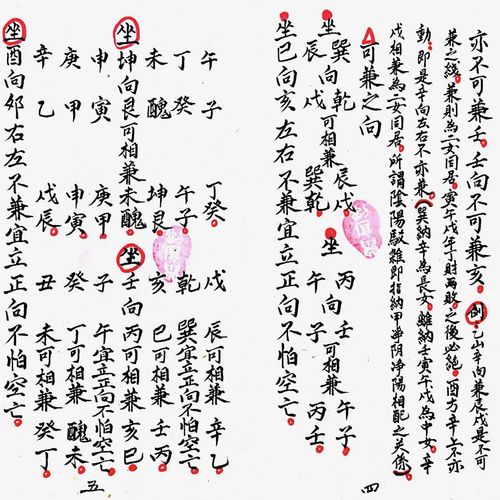 亦不可兼壬。壬向不可兼亥。例乙山辛向兼辰戌是不可
兼之線。兼則為二女同居。寅午戌年丁財兩敗之後必絕。酉方辛上不亦
動。即是辛向左右不亦兼(巽納辛為長女。離納壬寅午戌為中女。辛
戌相兼為二女同居。所謂陰陽馭雜即指納甲淨阴淨陽相配之关係)
可兼之向
坐巽向乾可相兼辰戌。坐丙向壬可相兼午子。
坐辰向戌可相兼巽乾。午子可相兼丙壬。
坐巳向亥左右不兼宜立正向不怕空亡。
四
午子丁癸。戌辰可相兼辛乙。
丁癸午子。乾巽宜立正向不怕空亡。
未醜坤艮。亥巳可相兼壬丙。
坐坤向艮可相兼未醜。坐壬向丙可相兼亥巳。
申寅庚甲。子午宜立正向不怕空亡。
庚甲申寅。癸丁可相兼醜未。
辛乙戊辰。丑未可相兼癸丁。
坐酉向卯右左不兼宜立正向不怕空亡。
五